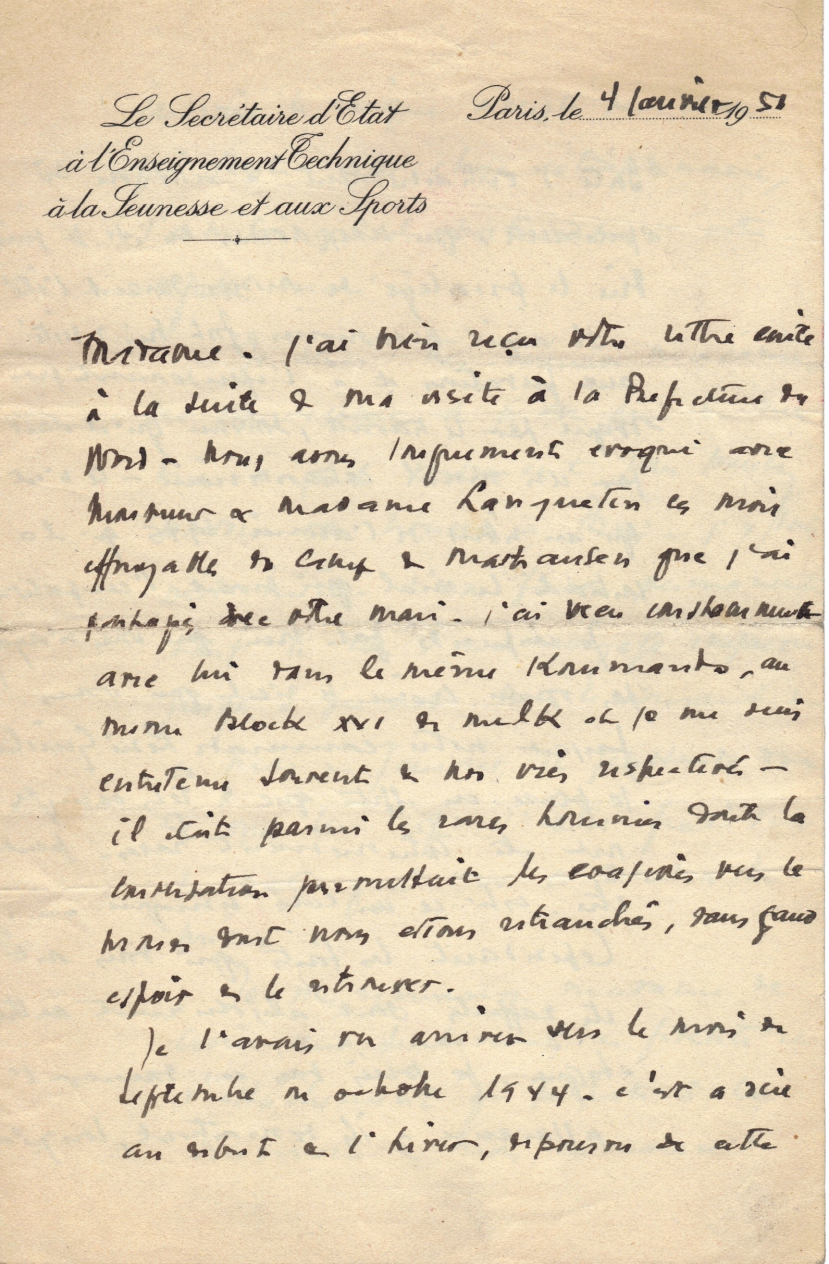 Le Secrétaire d'Etat
à l'Enseignement Technique
à la Jeunesse et aux Sports
Paris, le 4 Janvier 1951
Madame. J'ai bien reçu votre lettre écrite
à la suite de ma visite à la Préfecture du
Nord - Nous avons longuement evoqué avec
Monsieur & Madame Lanquetin ces mois
effroyables du Camp de Mauthausen que j'ai
partagés avec votre mari. J'ai vécu constamment
avec lui dans le même Kommando, au
meme Block XVI de Melk et je me suis
entretenu souvent de nos vies respectives -
il était parmi les rares hommes dont la
conversation permettait les evasions vers le
monde dont nous etions retranchés, sans grand
espoir de le retrouver.
Je l'avais vu arriver vers le mois de
Septembre ou octobre 1944. c'est a dire
au debut de l'hiver, de cette